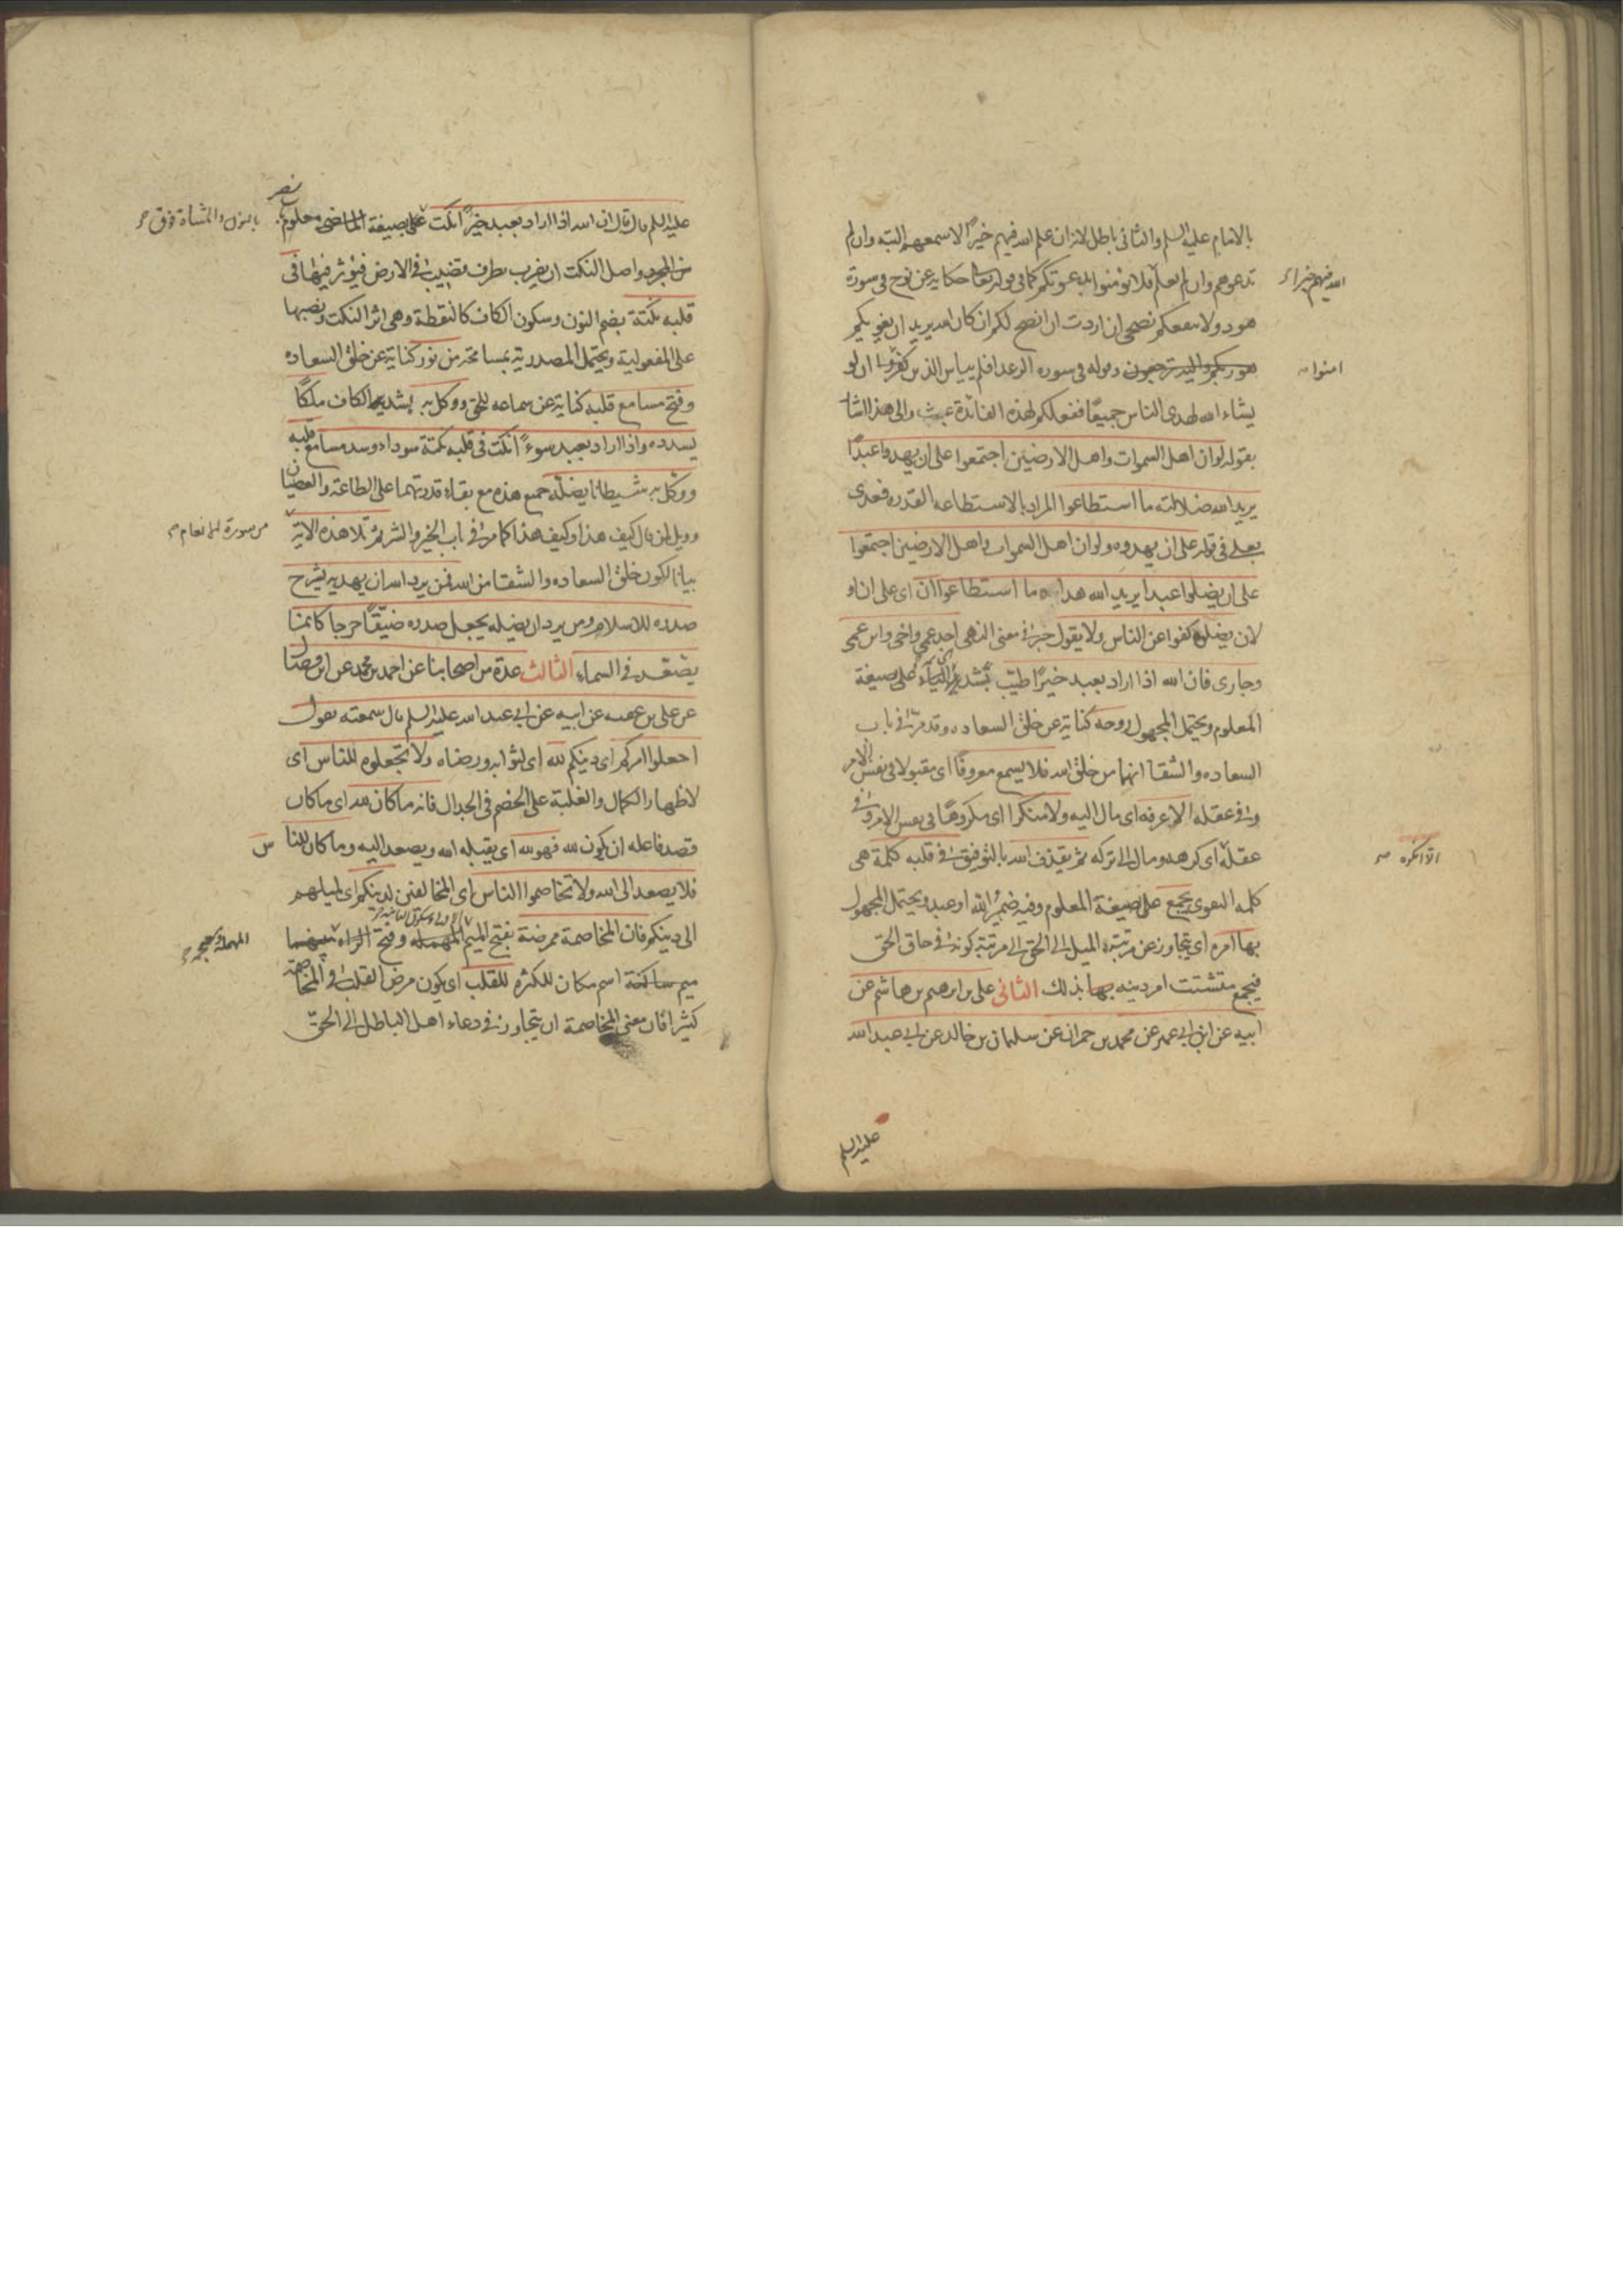 بالامام عليه السلم والثانى باطل لانه ان علم الله فيهم خيرًا لاسمعهم البتة وان لم
تدعوهم وان لم يعلم فلا يؤمنوا بدعوتكم كما فى قوله تعا حكاية عن نوح فى سورة
الله فيهم خيرا
هود ولا ينفعكم نصحى ان اردت ان انصح لكم ان كان الله يريد ان يغويكم
هو ربكم واليه ترجعون وقوله فى سورة الرعد افلم ييأس الذين كفروا ان لو
امنوا
يشاء الله لهدى الناس جميعًا ففعلكم لهذه الفائدة عبث والى هذا اشار
بقوله لو ان اهل السموات واهل الارضين اجتمعوا على ان يهدوا عبدًا
يريد الله ضلالته ما استطاعوا المراد بالاستطاعة القدرة فعدى
بعلى فى قوله على ان يهدوه ولو ان اهل السموات واهل الارضين اجتمعوا
على ان يضلوا عبدا يريد الله هداه ما استطاعوا ان اى على ان او
لان يضلوه كفوا عن الناس ولا يقول خبر فى معنى النهى احد عمى واخى وابن عمى
وجارى فان الله اذا اراد بعبد خيرًا طيب بتشديد الياء على صيغة
المعلوم ويحتمل المجهول روحه كناية عن خلق السعادة وقد مر فى باب
السعادة والشقا انهما من خلق الله فلا يسمع معروفًا اى مقبولا فى نفس الامر
وفى عقله الا عرفه اى مال اليه ولا منكرا اى مكروهًا فى نفس الامر وفى
عقله اى كرهه ومال الى تركه ثم يقذف الله بالتوفيق فى قلبه كلمة هى
الا انكره
كلمة التقوى يجمع على صيغة المعلوم وفيه ضمير الله او عبد ويحتمل المجهول
بها امره اى يتجاوز عن مرتبة الميل الى الحق الى مرتبة كونه فى حاق الحق
فيجمع متشتت امر دينه بها بذلك الثانى على بن ابرهيم بن هاشم عن
ابيه عن ابن ابى عمير عن محمد بن حمران عن سليمان بن خالد عن ابى عبد الله
عليه السلم
عليه السلم قال قال ان الله اذا اراد بعبد خيرًا نكت على بصيغة الماضى معلوم
نصر
بالنون والمثناة فوق
من المجرد واصل النكت ان يضرب بطرف قضيب فى الارض فيؤثر فيها فى
قلبه نكتة بضم النون وسكون الكاف كالنقطة وهى اثر النكت ونصبها
على المفعولية ويحتمل المصدرية بمسامحة من نور كناية عن خلق السعادة
وفتح مسامع قلبه كناية عن سماعه للحق ووكل به بتشديد الكاف ملكًا
يسدده واذا اراد بعبد سوءً نكت فى قلبه نكتة سوداء وسد مسامع قلبه
ووكل به شيطانا يضله جميع هذه مع بقاء قدرتهما على الطاعة والعصيان
وويل لمن قال كيف هذا وكيف هذا كما مر فى باب الخير والشر ثم تلا هذه الاية
من سورة الانعام
بيانا لكون خلق السعادة والشقا من الله فمن يرد الله ان يهديه يشرح
صدره للاسلام ومن يرد ان يضله يجعل صدره ضيقًا حرجا كانما
يصعد فى السماء الثالث عدة من اصحابنا عن احمد بن محمد عن ابن فضال
عن على بن عقبه عن ابيه عن ابى عبد الله عليه السلم قال سمعته يقول
اجعلوا امركم اى دينكم لله اى لثوابه ورضاه ولا تجعلوه للناس اى
لاظهار الكمال والغلبة على الخصم فى الجدال فانه ما كان لله اى ما كان
قصد فاعله ان يكون لله فهو لله اى يقبله الله ويصعد اليه وما كان للناس
فلا يصعد الى الله ولا تخاصموا الناس اى المخالفين لدينكم اى لميلهم
الى دينكم فان المخاصمة ممرضة بفتح الميم المهملة وفتح الراء بينهما
ميم ساكنة اسم مكان للكثرة للقلب اى يكون مرض القلب فى المخاصمة
كثيرا فان معنى المخاصمة ان يتجاوز فى دعاء اهل الباطل الى الحق